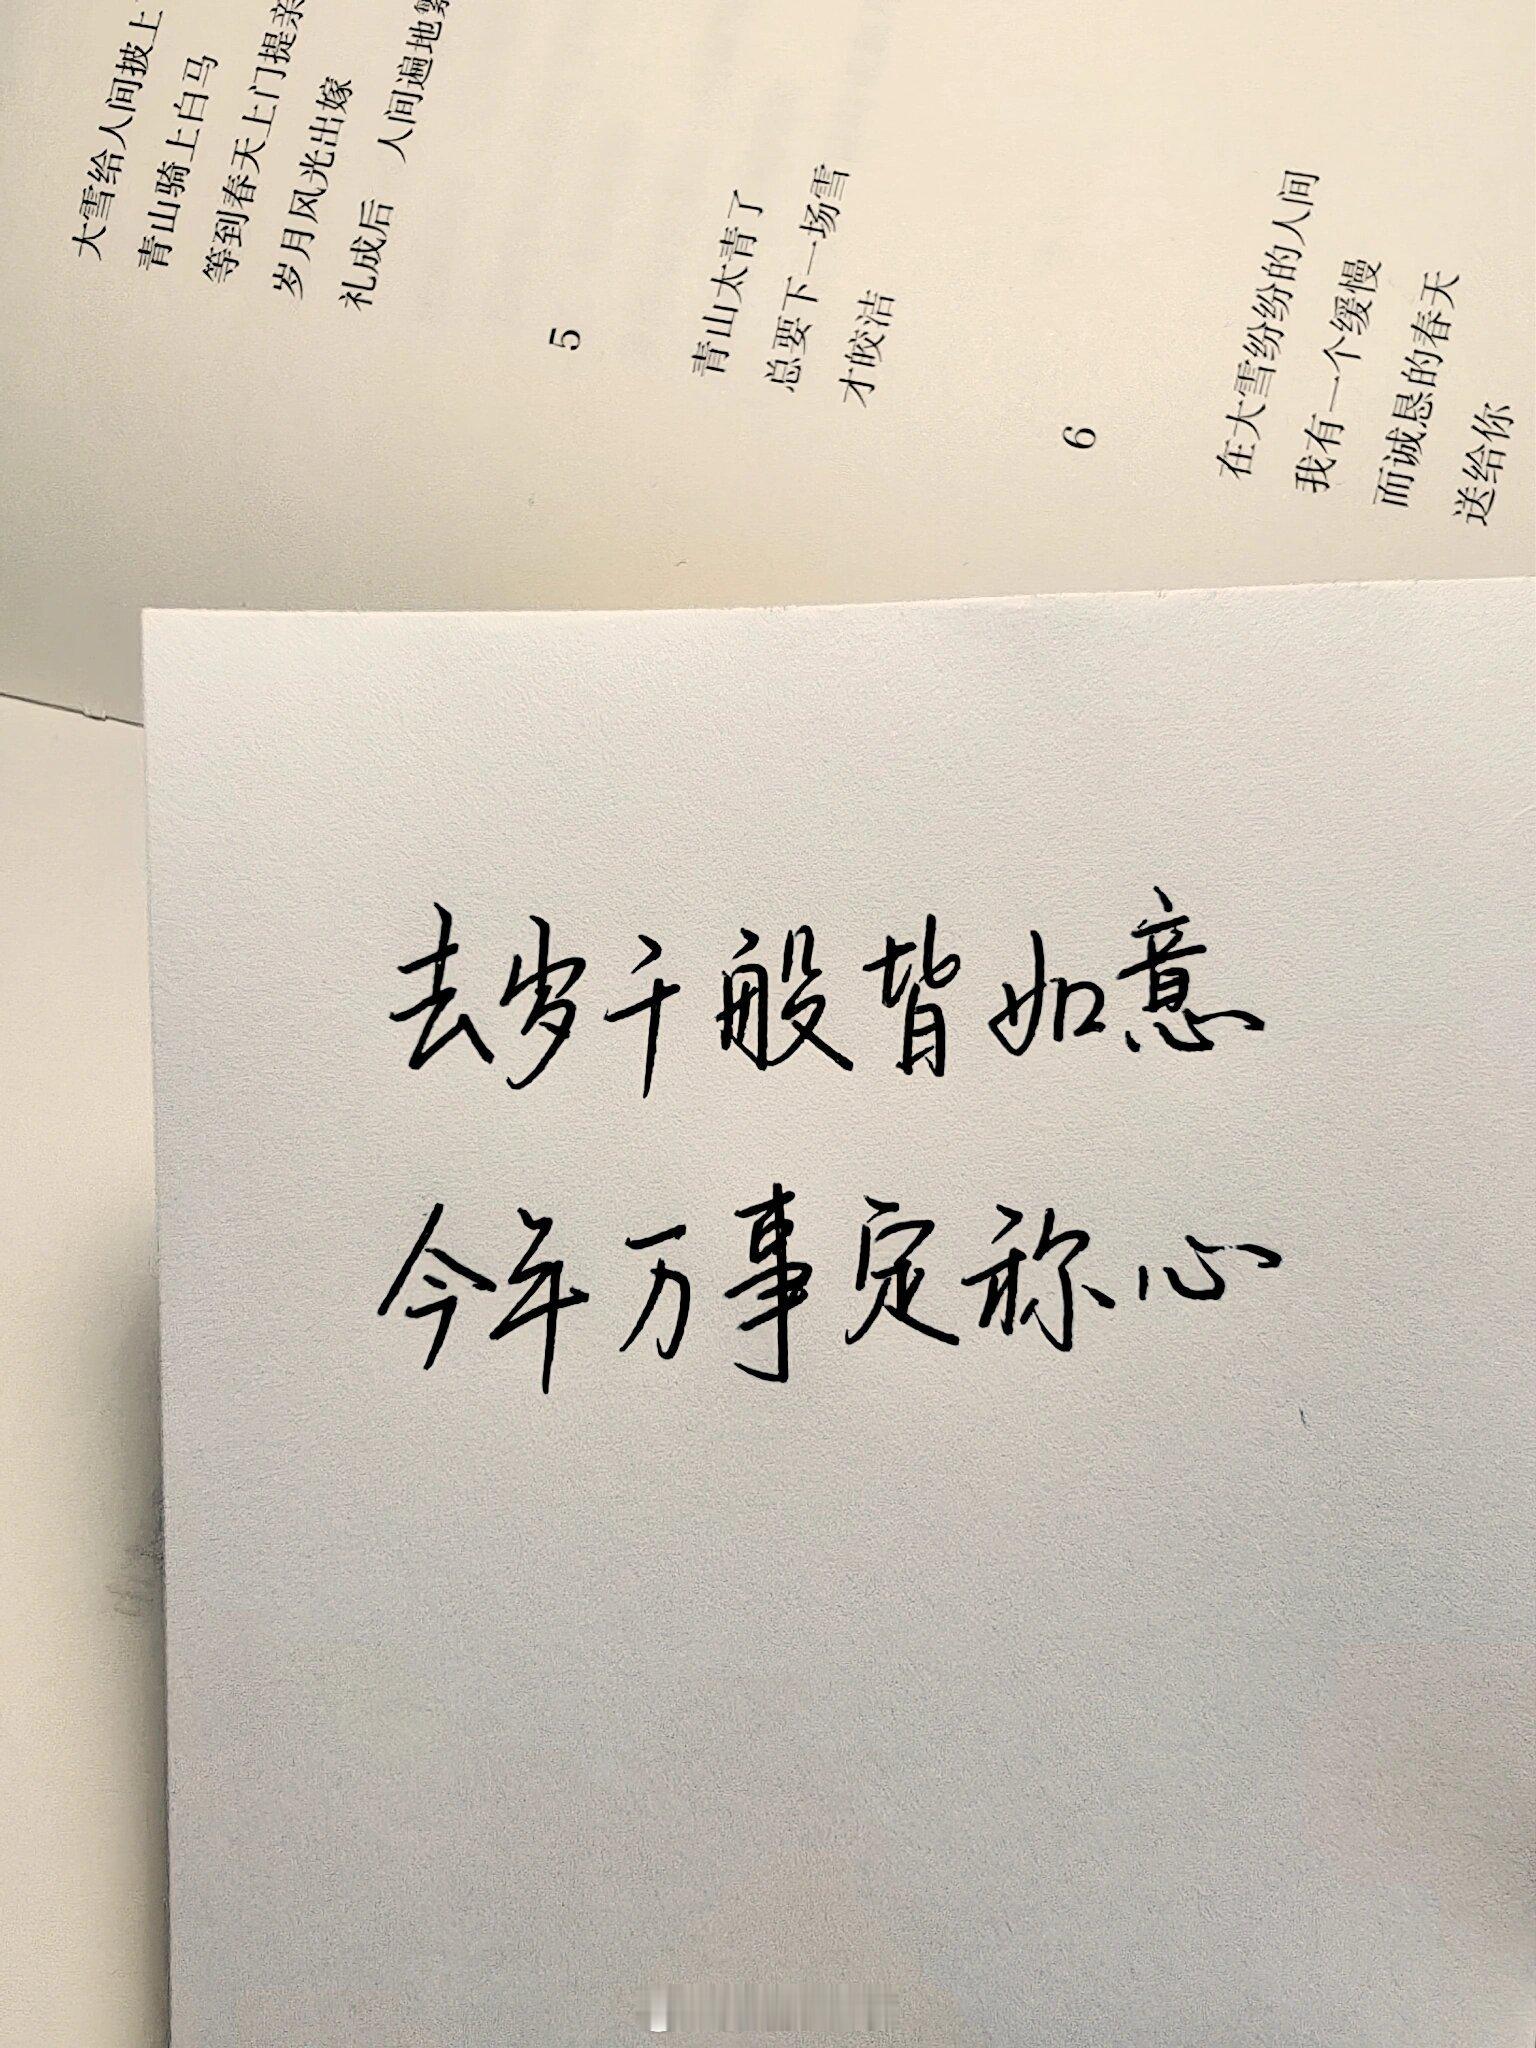 大雪给人间披上
青山骑上白马
等到春天上门提亲
岁月风光出嫁
礼成后 人间遍地繁
5
青山太青了
总要下一场雪
才皎洁
6
在大雪纷纷的人间
我有一个缓慢
而诚恳的春天
送给你
去岁千般皆如意
今年万事定称心